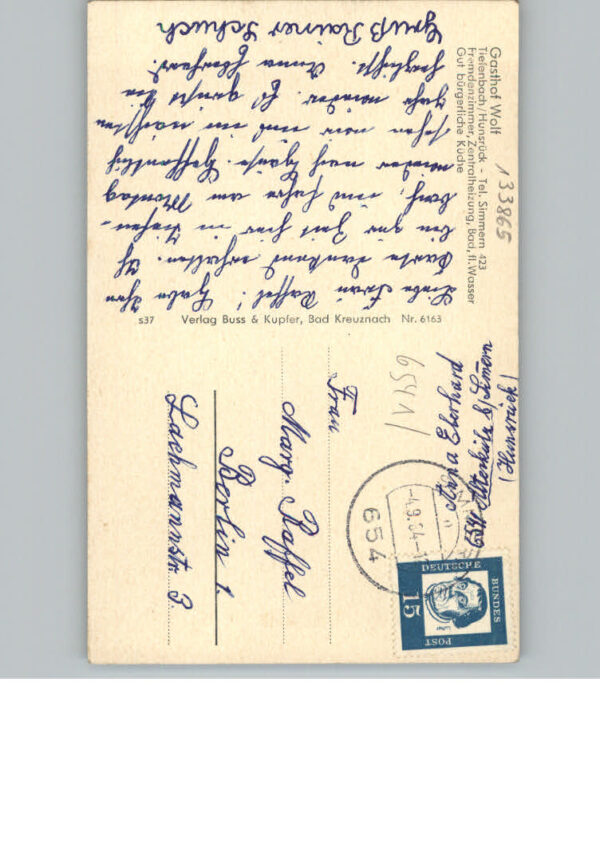 Gasthof Wolf
Tiefenbach/Hunsrück - Tel. Simmern 423
Fremdenzimmer, Zentralheizung, Bad, fl. Wasser
Gut bürgerliche Küche
133865
Liebe Frau Raffel! Habe Ihre
Karte dankend erhalten. Ich
bin zur Zeit hier in Tiefen-
bach, und fahre am Montag
wieder nach Hause. Hoffentlich
sehen wir uns im nächsten
Jahr wieder. Es grüßt Sie
herzlichst. Anna Eberhard.
Gruß Rainer Schuch
s37 Verlag Buss & Kupfer, Bad Kreuznach Nr. 6163
6541/
Anna Eberhard
654 Alterkülz b/Simmern
(Hunsrück)
654
-4.9.64-1
DEUTSCHE
BUNDES
POST
15
Luther
Frau
Marg. Raffel
Berlin 1.
Lachmannstr. 3.